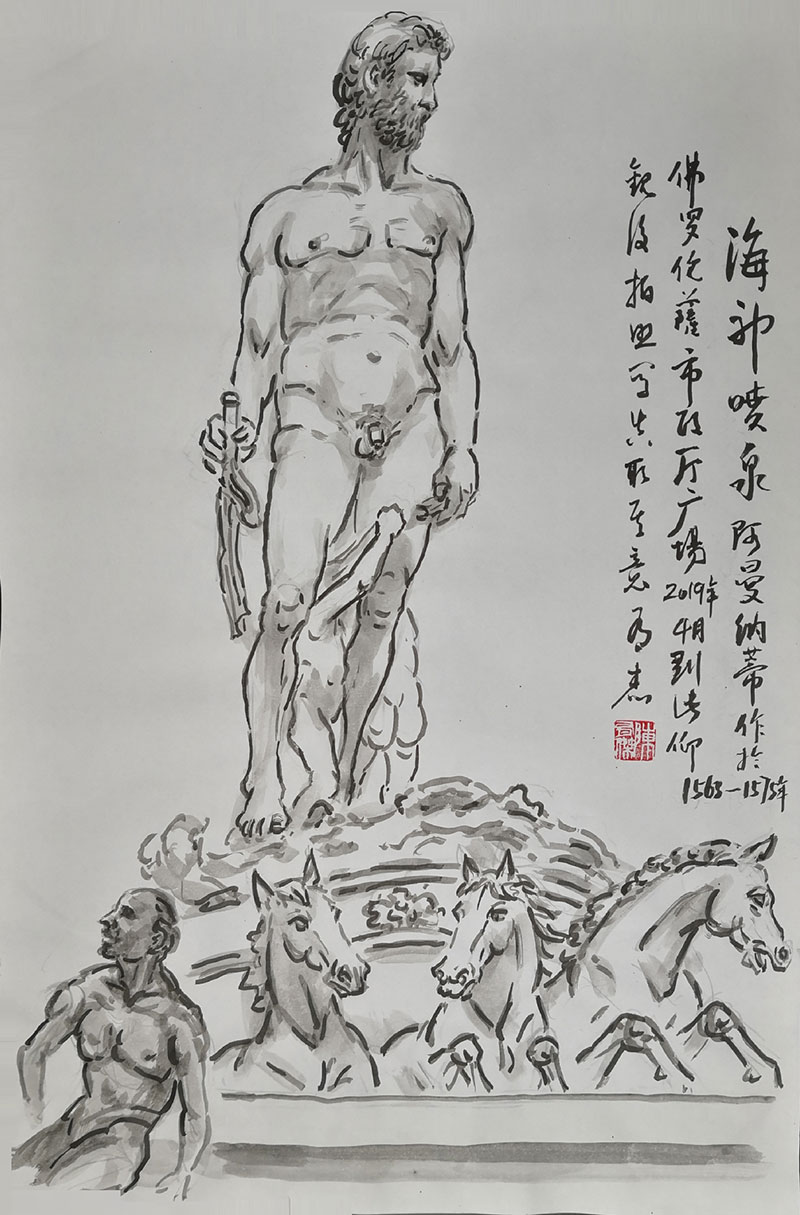 海神喷泉 阿曼纳蒂作於1563—1575年
佛罗伦萨市政厅广场2019年4月到此仰
观后拍照写其形其意为志